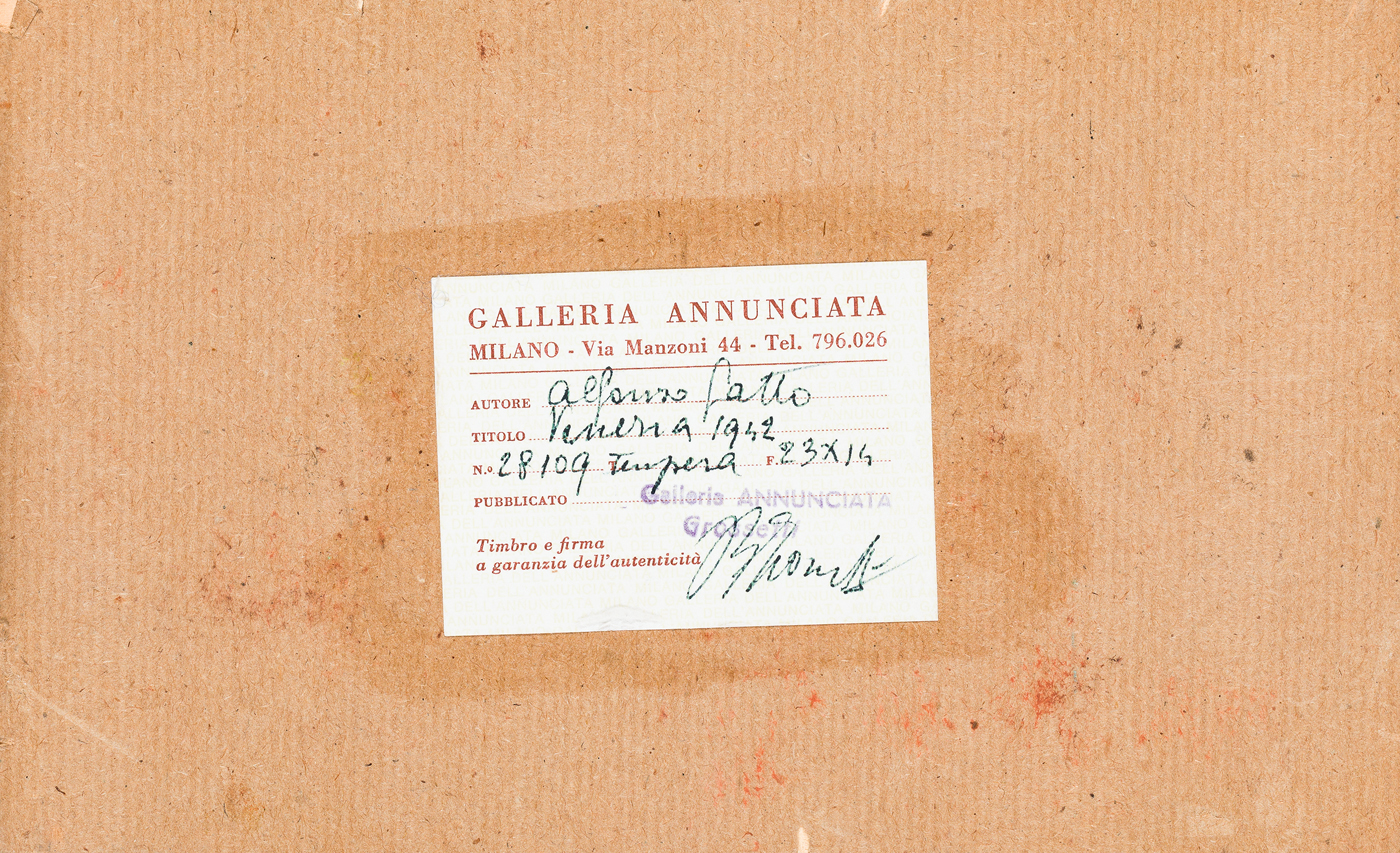 GALLERIA ANNUNCIATA
MILANO - Via Manzoni 44 - Tel. 796.026
AUTORE Alfonso Gatto
TITOLO Venezia 1942
N.o 28109 Tempera F. 23X14
PUBBLICATO
Galleria ANNUNCIATA
Grossetti
Timbro e firma
a garanzia dell'autenticità